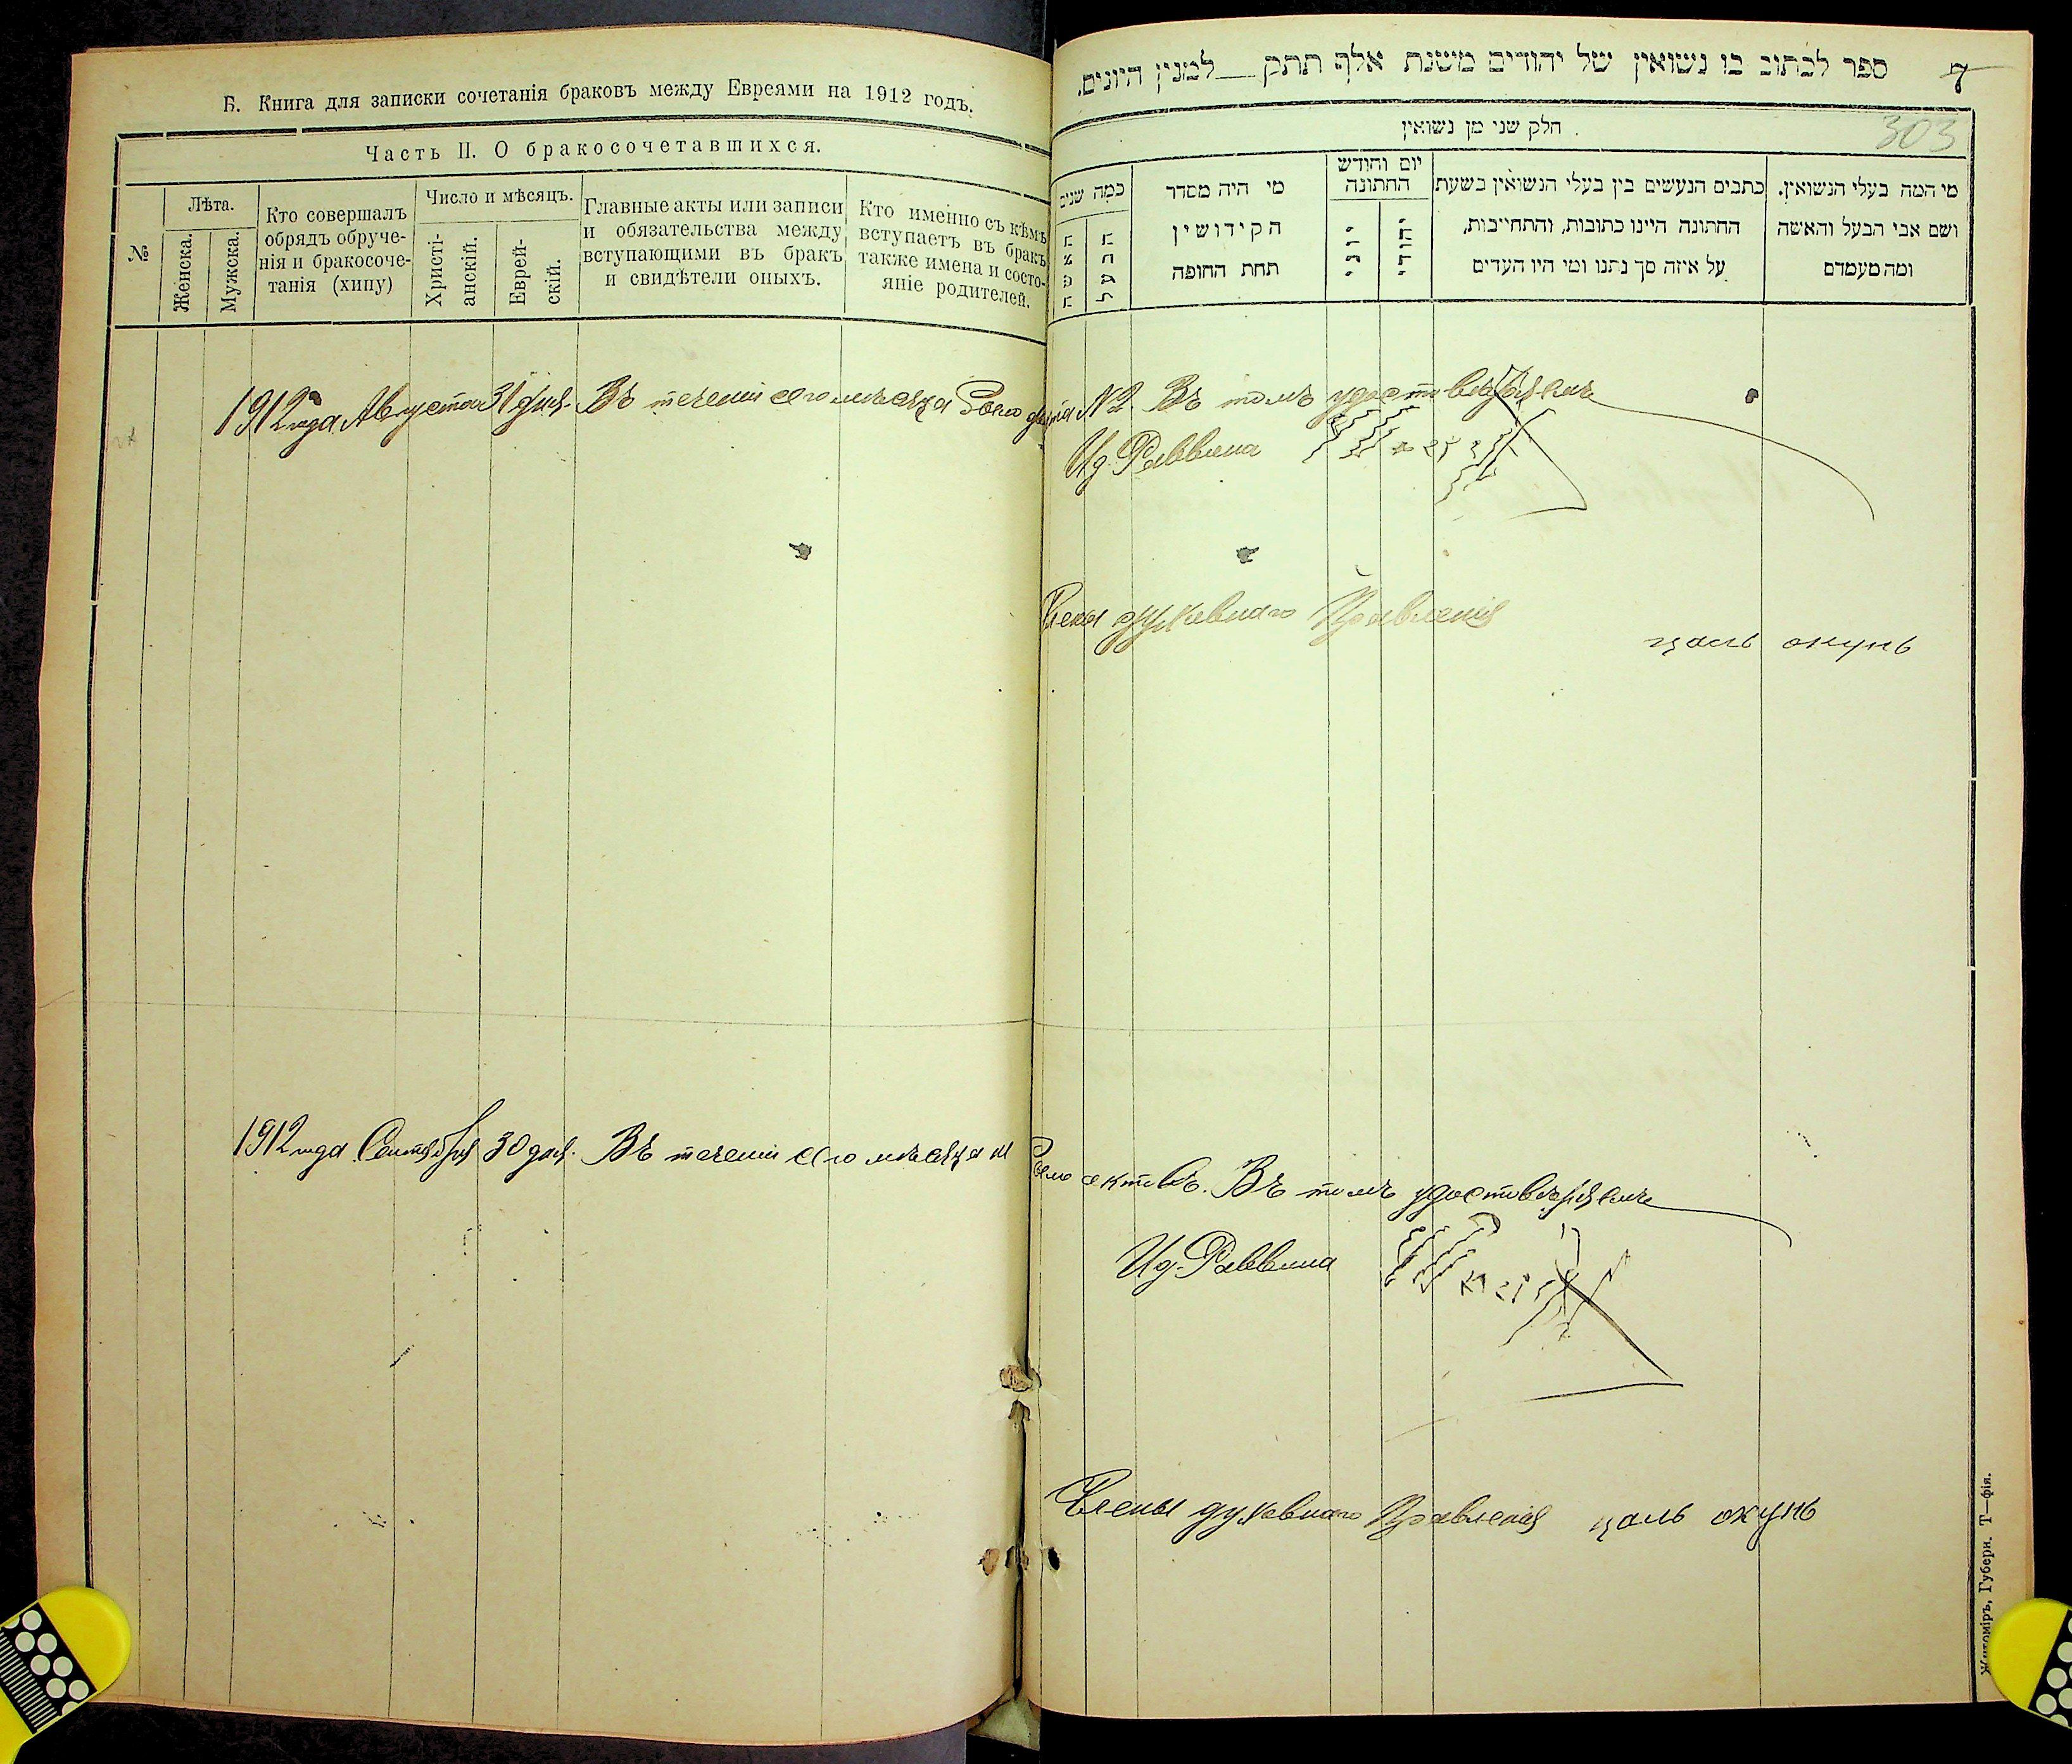 Б. Книга для записки сочетанія браковъ между Евреями на 1912 годъ.
Часть II. О бракосочетавшихся.
№
Лѣта.
Женска.
Мужска.
Кто совершалъ
обрядъ обруче-
нія и бракосоче-
танія (хипу)
Число и мѣсяцъ.
Христі-
анскій.
Еврей-
скій.
Главные акты или записи
и обязательства между
вступающими въ бракъ
и свидѣтели оныхъ.
Кто именно съ кѣмъ
вступаетъ въ бракъ
также имена и состо-
яніе родителей.
1912 года Августа 31 дня. Въ теченіи сего мѣсяца было
1912 года Сентября 30 дня. Въ теченіи сего мѣсяца
ספר לכתוב בו נשואין של יהודים משנת אלף תתק למנין היונים.
7
303
חלק שני מן נשואין
כמה שנים
האשה
הבעל
מי היה מסדר
הקידושין
תחת החופה
יום וחודש
החתונה
יוני
יהודי
כתבים הנעשים בין בעלי הנשואין בשעת
החתונה היינו כתובות, והתחייבות,
על איזה סך נתנו ומי היו העדים
מי המה בעלי הנשואין.
ושם אבי הבעל והאשה
ומה מעמדם
№ 2. Въ томъ удостовѣряемъ
Ид. Раввина
Члены духовнаго Правленія
цаль окунь
было актовъ. Въ томъ удостовѣряемъ
Ид. Раввина
Члены духовнаго Правленія цаль окунь
Житоміръ, Губерн. Т—фія.